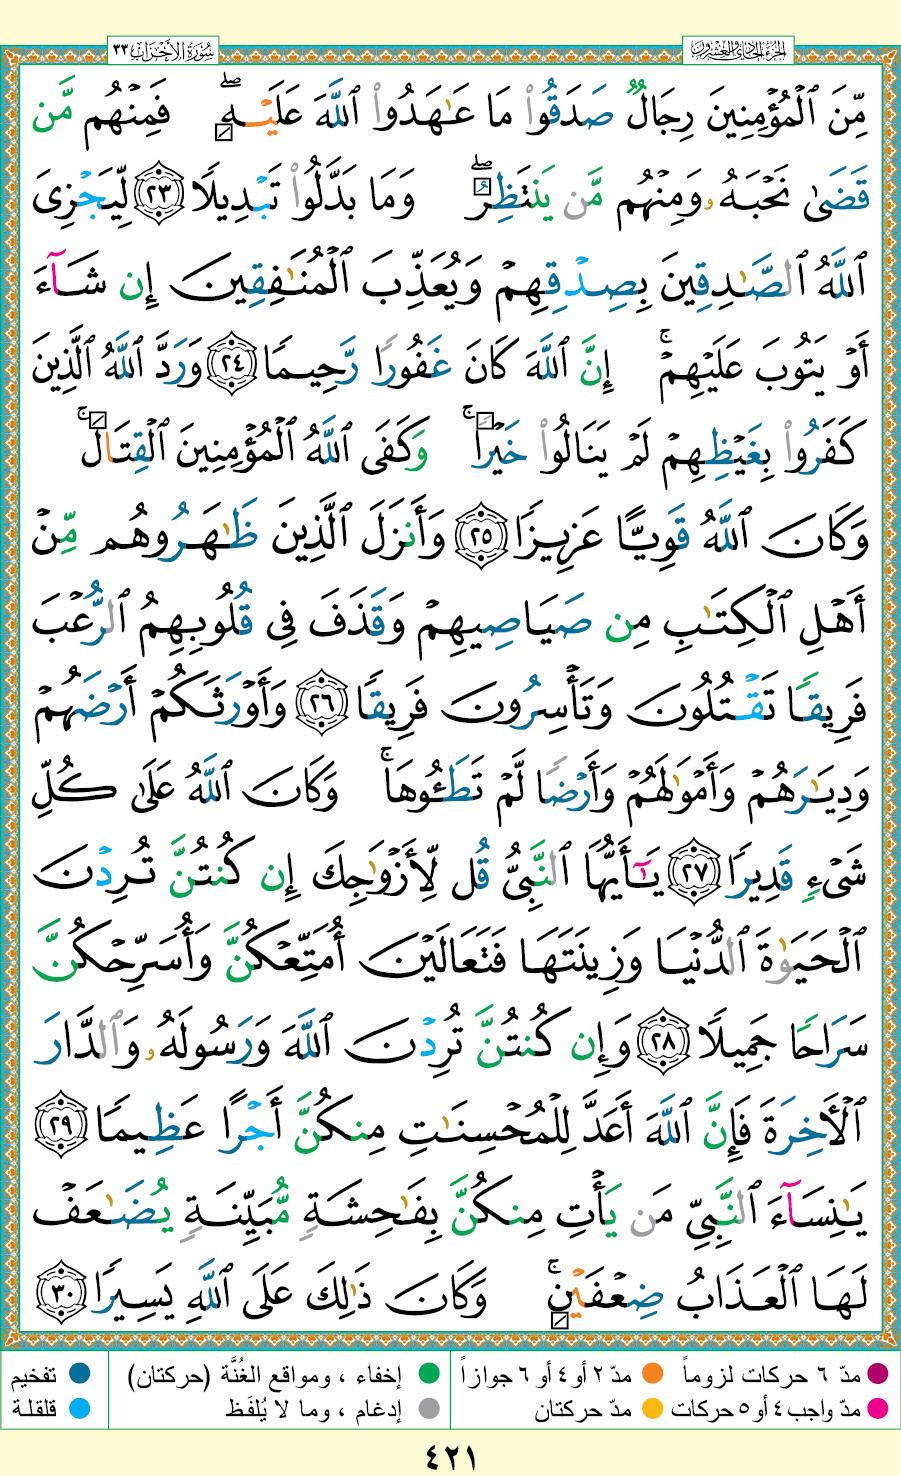 سُورَةُ الأَحْزَاب ٣٣
الجُزءُ الحَادِي وَالعِشْرُون
مِّنَ ٱلْمُؤْمِنِينَ رِجَالٌ صَدَقُوا۟ مَا عَـٰهَدُوا۟ ٱللَّهَ عَلَيْهِ ۖ فَمِنْهُم مَّن
قَضَىٰ نَحْبَهُۥ وَمِنْهُم مَّن يَنتَظِرُ ۖ وَمَا بَدَّلُوا۟ تَبْدِيلًا ٢٣ لِّيَجْزِىَ
ٱللَّهُ ٱلصَّـٰدِقِينَ بِصِدْقِهِمْ وَيُعَذِّبَ ٱلْمُنَـٰفِقِينَ إِن شَآءَ
أَوْ يَتُوبَ عَلَيْهِمْ ۚ إِنَّ ٱللَّهَ كَانَ غَفُورًا رَّحِيمًا ٢٤ وَرَدَّ ٱللَّهُ ٱلَّذِينَ
كَفَرُوا۟ بِغَيْظِهِمْ لَمْ يَنَالُوا۟ خَيْرًا ۚ وَكَفَى ٱللَّهُ ٱلْمُؤْمِنِينَ ٱلْقِتَالَ ۚ
وَكَانَ ٱللَّهُ قَوِيًّا عَزِيزًا ٢٥ وَأَنزَلَ ٱلَّذِينَ ظَـٰهَرُوهُم مِّنْ
أَهْلِ ٱلْكِتَـٰبِ مِن صَيَاصِيهِمْ وَقَذَفَ فِى قُلُوبِهِمُ ٱلرُّعْبَ
فَرِيقًا تَقْتُلُونَ وَتَأْسِرُونَ فَرِيقًا ٢٦ وَأَوْرَثَكُمْ أَرْضَهُمْ
وَدِيَـٰرَهُمْ وَأَمْوَٰلَهُمْ وَأَرْضًا لَّمْ تَطَـُٔوهَا ۚ وَكَانَ ٱللَّهُ عَلَىٰ كُلِّ
شَىْءٍ قَدِيرًا ٢٧ يَـٰٓأَيُّهَا ٱلنَّبِىُّ قُل لِّأَزْوَٰجِكَ إِن كُنتُنَّ تُرِدْنَ
ٱلْحَيَوٰةَ ٱلدُّنْيَا وَزِينَتَهَا فَتَعَالَيْنَ أُمَتِّعْكُنَّ وَأُسَرِّحْكُنَّ
سَرَاحًا جَمِيلًا ٢٨ وَإِن كُنتُنَّ تُرِدْنَ ٱللَّهَ وَرَسُولَهُۥ وَٱلدَّارَ
ٱلْـَٔاخِرَةَ فَإِنَّ ٱللَّهَ أَعَدَّ لِلْمُحْسِنَـٰتِ مِنكُنَّ أَجْرًا عَظِيمًا ٢٩
يَـٰنِسَآءَ ٱلنَّبِىِّ مَن يَأْتِ مِنكُنَّ بِفَـٰحِشَةٍ مُّبَيِّنَةٍ يُضَـٰعَفْ
لَهَا ٱلْعَذَابُ ضِعْفَيْنِ ۚ وَكَانَ ذَٰلِكَ عَلَى ٱللَّهِ يَسِيرًا ٣٠
مدّ ٦ حركات لزوماً مدّ ٢ أو ٤ أو ٦ جوازاً إخفاء ، ومواقع الغُنَّة (حركتان) تفخيم
مدّ واجب ٤ أو ٥ حركات مدّ حركتان إدغام ، وما لا يُلفَظ قلقلة
٤٢١